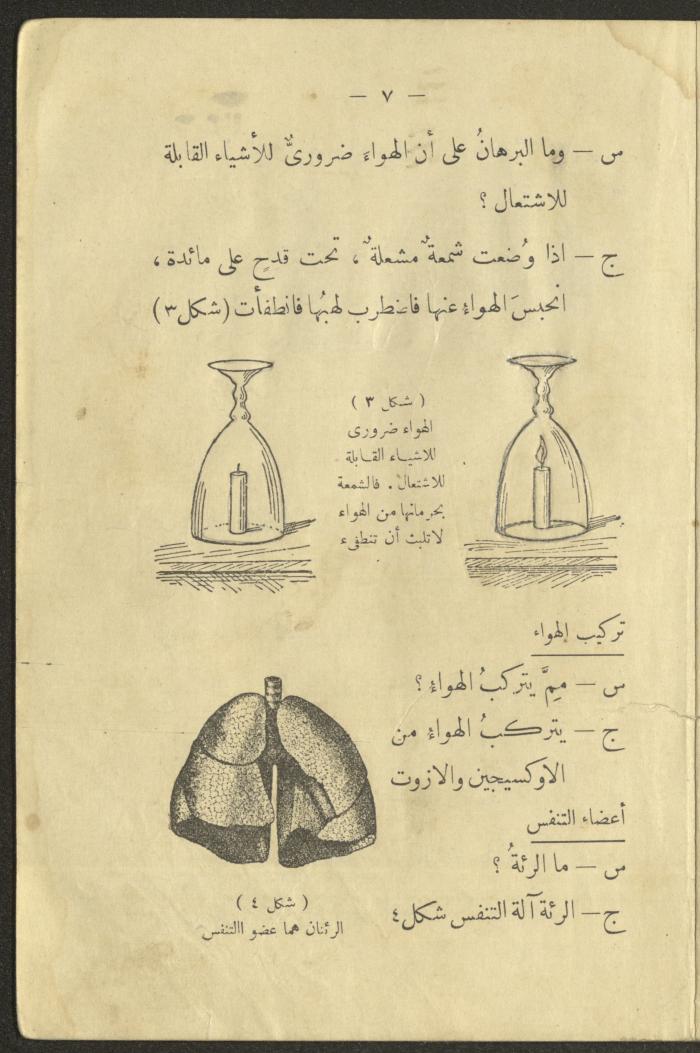 — ٧ —
س — وما البرهانُ على أن الهواءَ ضرورىٌّ للأشياء القابلة
للاشتعال ؟
ج — اذا وُضعت شمعةٌ مشعلةٌ ، تحت قدحٍ على مائدة ،
انحبسَ الهواءُ عنها فاضطرب لهبُها فانطفأت (شكل ٣)
( شكل ٣ )
الهواء ضرورى
للاشياء القابلة
للاشتعال . فالشمعة
بحرمانها من الهواء
لاتلبث أن تنطفىء
تركيب الهواء
س — مِمَّ يتركبُ الهواءُ ؟
ج — يتركبُ الهواءُ من
الاوكسيجين والازوت
أعضاء التنفس
س — ما الرئةُ ؟
ج — الرئة آلة التنفس شكل ٤
( شكل ٤ )
الرئتان هما عضو االتنفس